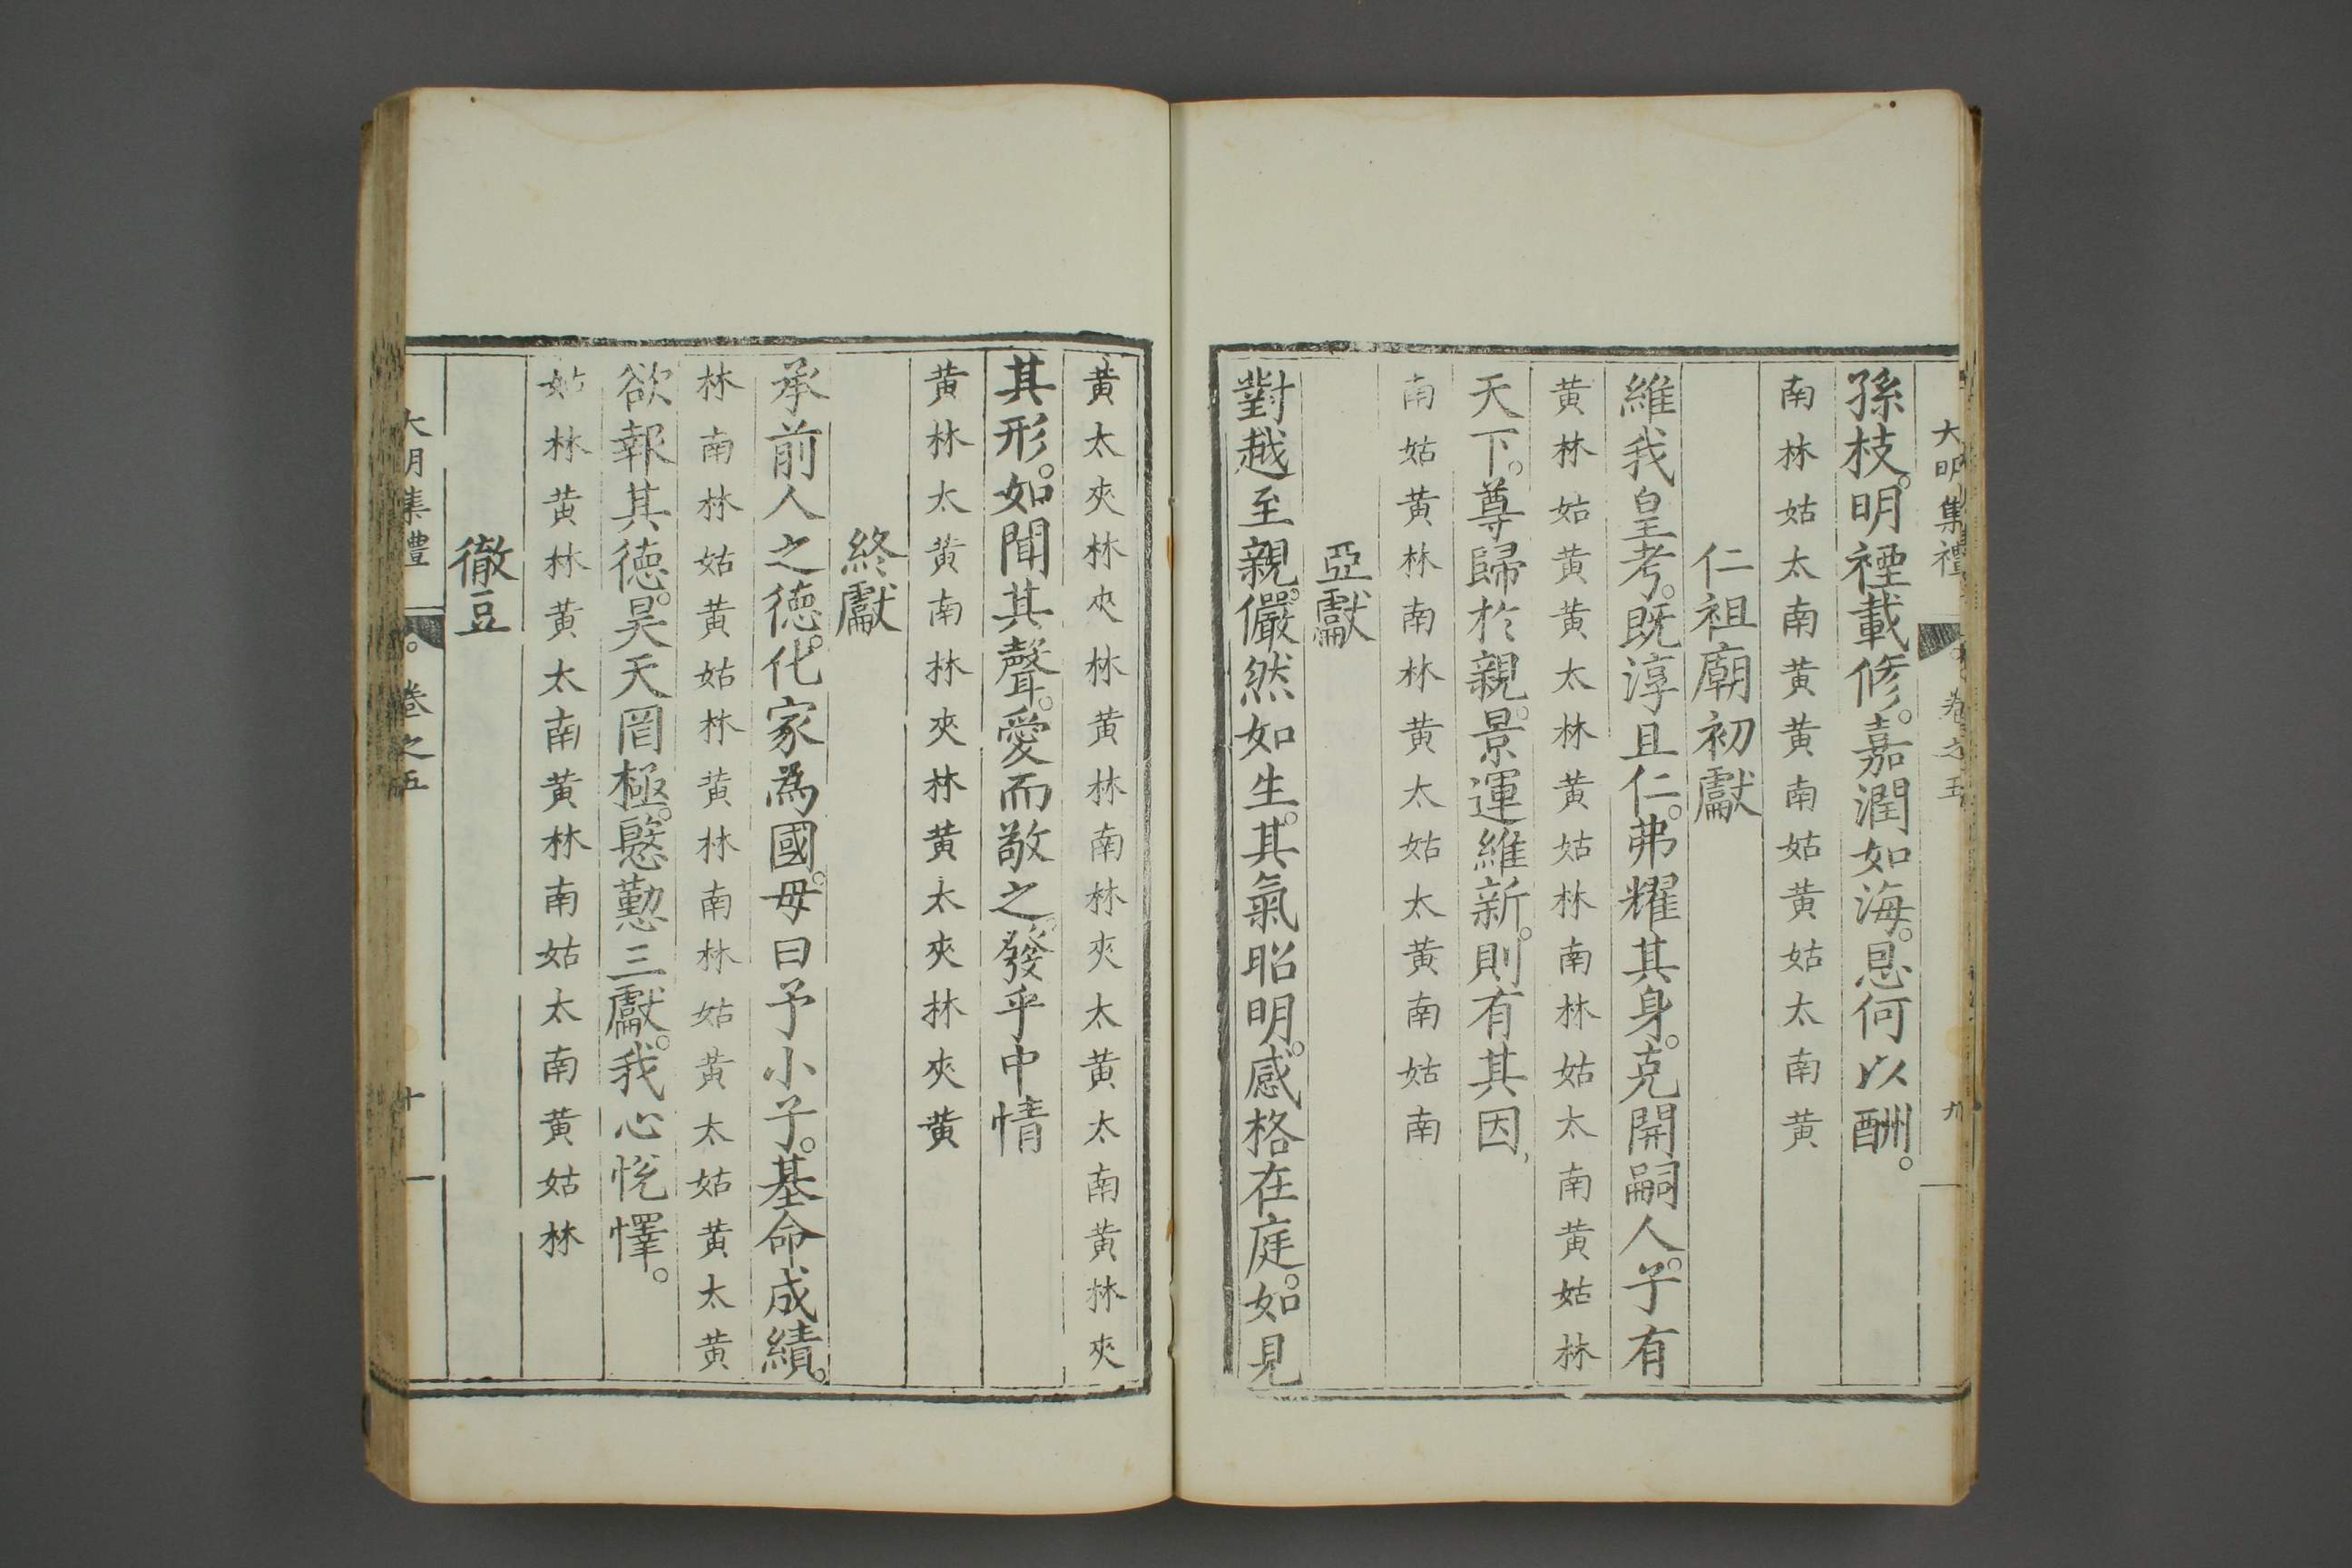 大明集禮 卷之五 九
孫枝。明禋載修。嘉潤如海。恩何以酬。
南林姑太南黄黄南姑黄姑太南黄
仁祖廟初獻
維我皇考。既淳且仁。弗耀其身。克開嗣人。子有
黄林姑黄黄太林黄姑林南林姑太南黄姑林
天下。尊歸於親。景運維新。則有其因
南姑黄林南林黄太姑太黄南姑南
亞獻
對越至親。儼然如生。其氣昭明。感格在庭。如見
黄太夾林夾林黄林南林夾太黄太南黄林夾
其形。如聞其聲。愛而敬之。發乎中情
黄林太黄南林夾林黄太夾林夾黄
終獻
承前人之德。化家為國。毋曰予小子。基命成績。
林南林姑黄姑林黄林南林姑黄太姑黄太黄
欲報其德。昊天罔極。慇懃三獻。我心悅懌。
姑林黄林黄太南黄林南姑太南黄姑林
徹豆
大明集禮 卷之五 十一